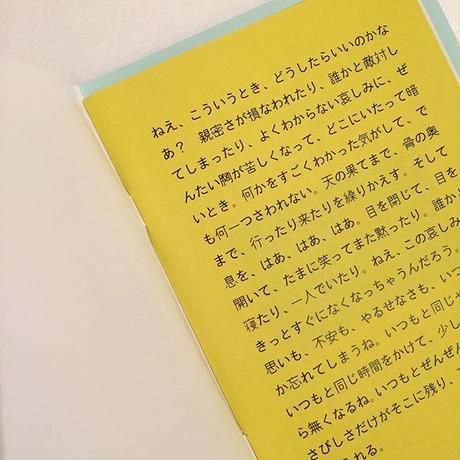 ねえ、こういうとき、どうしたらいいのかな
あ？　親密さが損なわれたり、誰かと敵対し
てしまったり、よくわからない哀しみに、ぜ
んたい胸が苦しくなって、どこにいたって暗
いとき。何かをすごくわかった気がして、で
も何一つさわれない。天の果てまで、骨の奥
まで、行ったり来たりを繰りかえす。そして
息を、はあ、はあ、はあ。目を閉じて、目を
開いて、たまに笑ってまた黙ったり。誰かと
寝たり、一人でいたり。ねえ、この哀しみ
きっとすぐになくなっちゃうんだろう。
思いも、不安も、やるせなさも、いつ
か忘れてしまうね。いつもと同じ
いつもと同じ時間をかけて、少し
ら無くなるね。いつもとぜんぜん
さびしさだけがそこに残り、
られる。